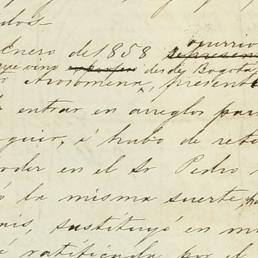 dos
ocurrió
Enero de 1858
que vino desde Bogotá
Arosemena, present
entrar en arreglos par
guir, é hubo de reti
oder en el Sr Pedro
ó la misma suerte,
is, sustituyó en m
é ratificada por el